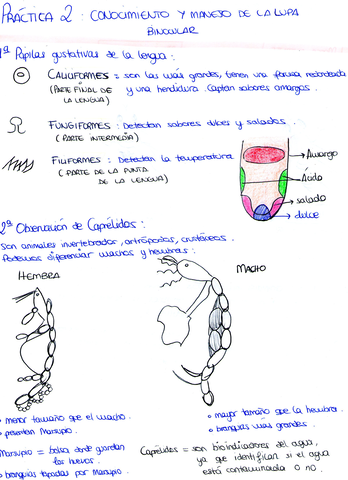 PRÁCTICA 2: CONOCIMIENTO Y MANEJO DE LA LUPA
BINOCULAR
1ª Papilas gustativas de la lengua:
CALICIFORMES = son las más grandes, tienen una forma redondeada
(PARTE FINAL DE LA LENGUA) y una hendidura. Captan sabores amargos.
FUNGIFORMES: Detectan sabores dulces y salados.
(PARTE INTERMEDIA)
FILIFORMES: Detectan la temperatura.
(PARTE DE LA PUNTA
DE LA LENGUA)
Amargo
Ácido
salado
dulce
2ª Observación de Caprélidos:
Son animales invertebrados, artrópodos, crustáceos.
Podemos diferenciar machos y hembras:
HEMBRA
MACHO
menor tamaño que el macho.
presentan Marsupio.
Marsupio = bolsa donde guardan
los huevos.
branquias tapadas por Marsupio.
mayor tamaño que la hembra.
branquias más grandes.
Caprélidos = son bioindicadores del agua,
ya que identifican si el agua
está contaminada o no.